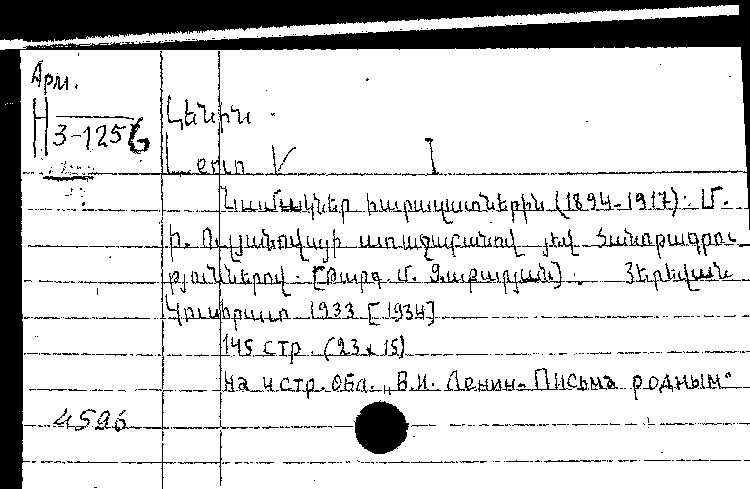 Арм.
Н 3-1256
Լենին
Նամակներ հարազատներին (1894-1917). Մ.
Ի. Ուլյանովայի առաջաբանով յեվ ծանորագրու
թյուններով. [Թարգ. Մ. Զաքարյան]. Յերեվան
Կուսհրատ 1933 [1934]
145 стр. (23x15)
На 4 стр. обл. „В.И. Ленин- Письма родным"
4596